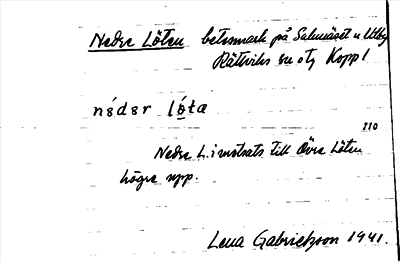 Nedre Löten betesmark på Salunäset u Utby
Rättviks sn otj Koppl
nέdεr lǿta
220
Nedre L. i motsats till Övre Löten
högre upp.
Lena Gabrielsson 1941.